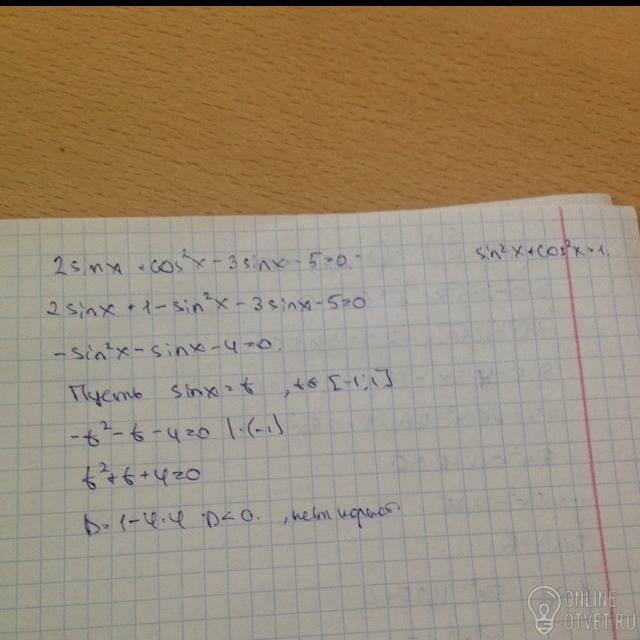 2sinx + cos²x - 3sinx - 5 = 0.
sin²x + cos²x = 1.
2sinx + 1 - sin²x - 3sinx - 5 = 0
-sin²x - sinx - 4 = 0.
Пусть sinx = t , t ∈ [-1; 1]
-t² - t - 4 = 0 | · (-1)
t² + t + 4 = 0
D = 1 - 4 · 4 D < 0. , нет
ONLINE
OTVET.RU